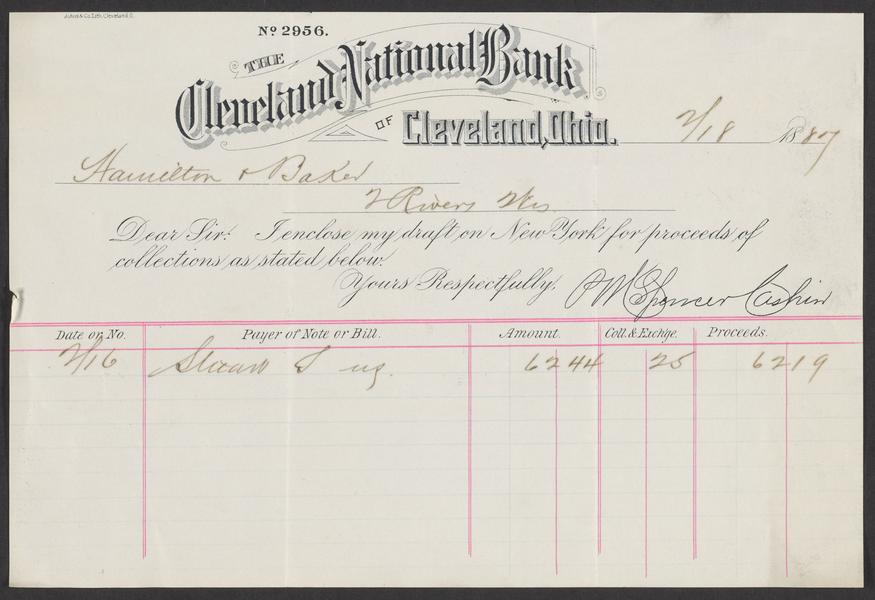 No 2956.
THE
Cleveland National Bank
OF Cleveland, Ohio.
2/18 1887
Hamilton & Baker
2 Rivers Wis
Dear Sir: I enclose my draft on New York for proceeds of
collections as stated below.
Yours Respectfully,
P M Spencer Cashier
Date or No. Payer of Note or Bill. Amount. Coll. & Exchge. Proceeds.
2/16 62 44 25 62 19